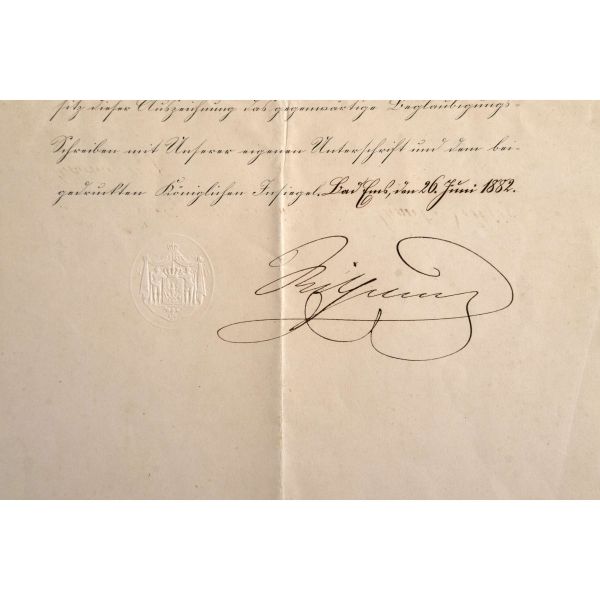 sitz dieser Auszeichnung das gegenwärtige Beglaubigungs-
Schreiben mit Unserer eigenen Unterschrift und dem bei-
gedruckten Königlichen Insiegel. Bad Ems, den 26. Juni 1882.
Wilhelm